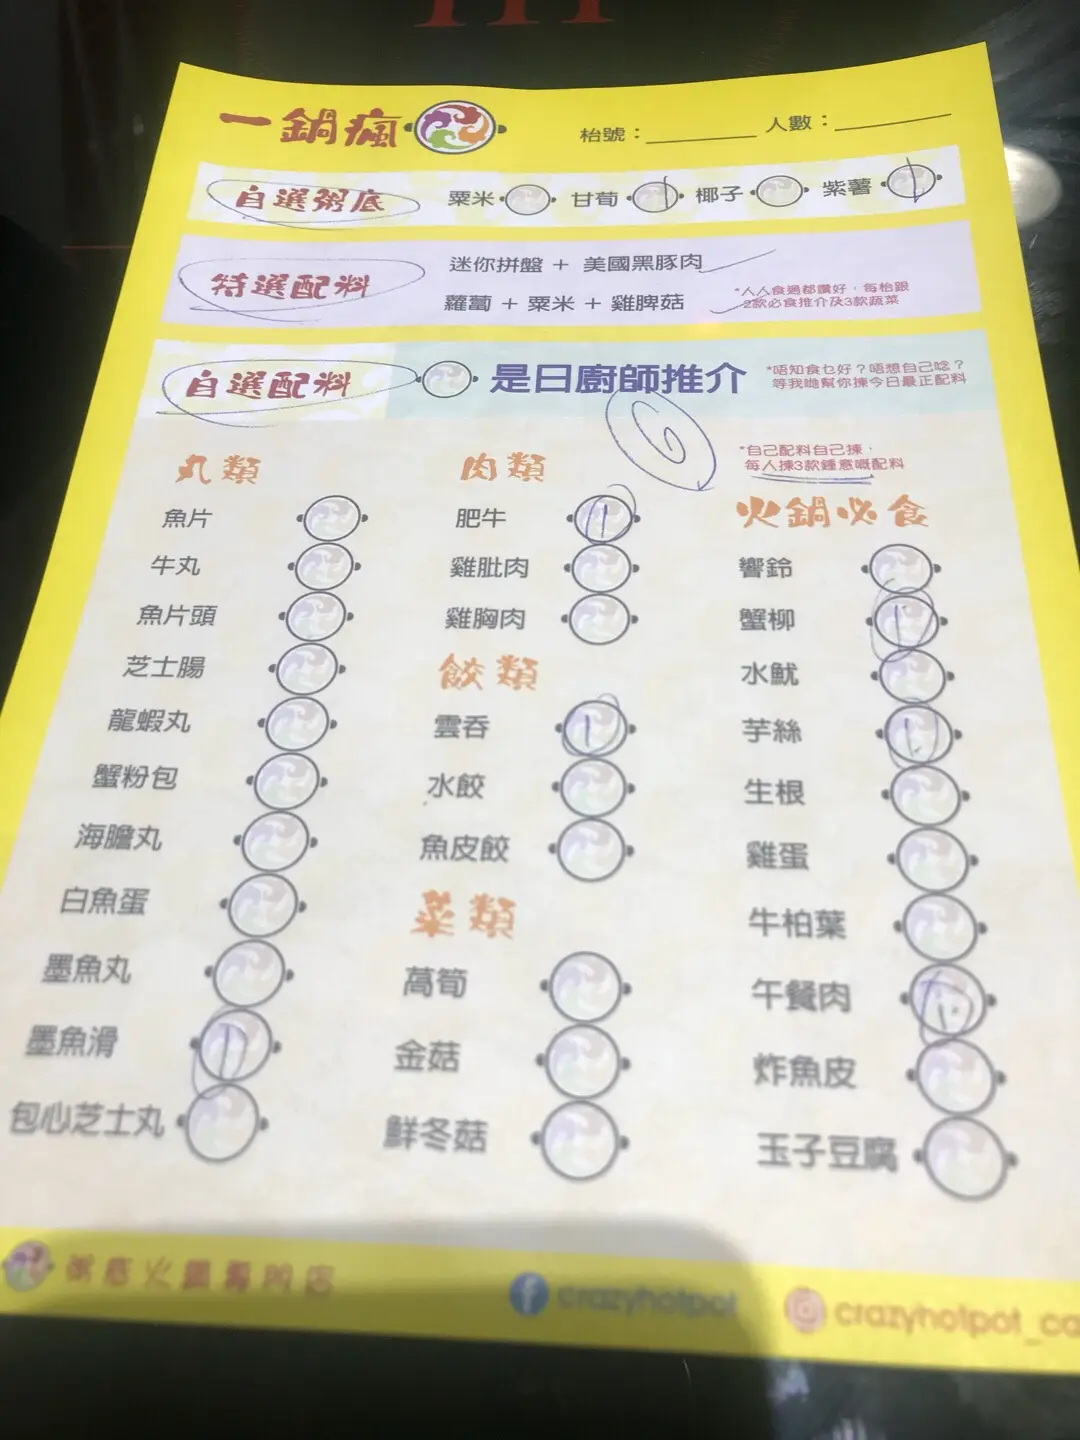 一鍋瘋
枱號：
人數：
自選粥底
粟米
甘荀
椰子
紫薯
特選配料
迷你拼盤 + 美國黑豚肉
蘿蔔 + 粟米 + 雞脾菇
*人人食過都讚好，每枱跟
2款必食推介及3款蔬菜
自選配料
是日廚師推介
*唔知食乜好？唔想自己唸？
等我哋幫你揀今日最正配料
6
*自己配料自己揀，
每人揀3款鍾意嘅配料
丸類
魚片
牛丸
魚片頭
芝士腸
龍蝦丸
蟹粉包
海膽丸
白魚蛋
墨魚丸
墨魚滑
1
包心芝士丸
肉類
肥牛
1
雞肶肉
雞胸肉
餃類
雲吞
1
水餃
魚皮餃
菜類
萵筍
金菇
鮮冬菇
火鍋必食
響鈴
蟹柳
1
水魷
芋絲
1
生根
雞蛋
牛柏葉
午餐肉
1
炸魚皮
玉子豆腐
crazyhotpot
crazyhotpot_ca